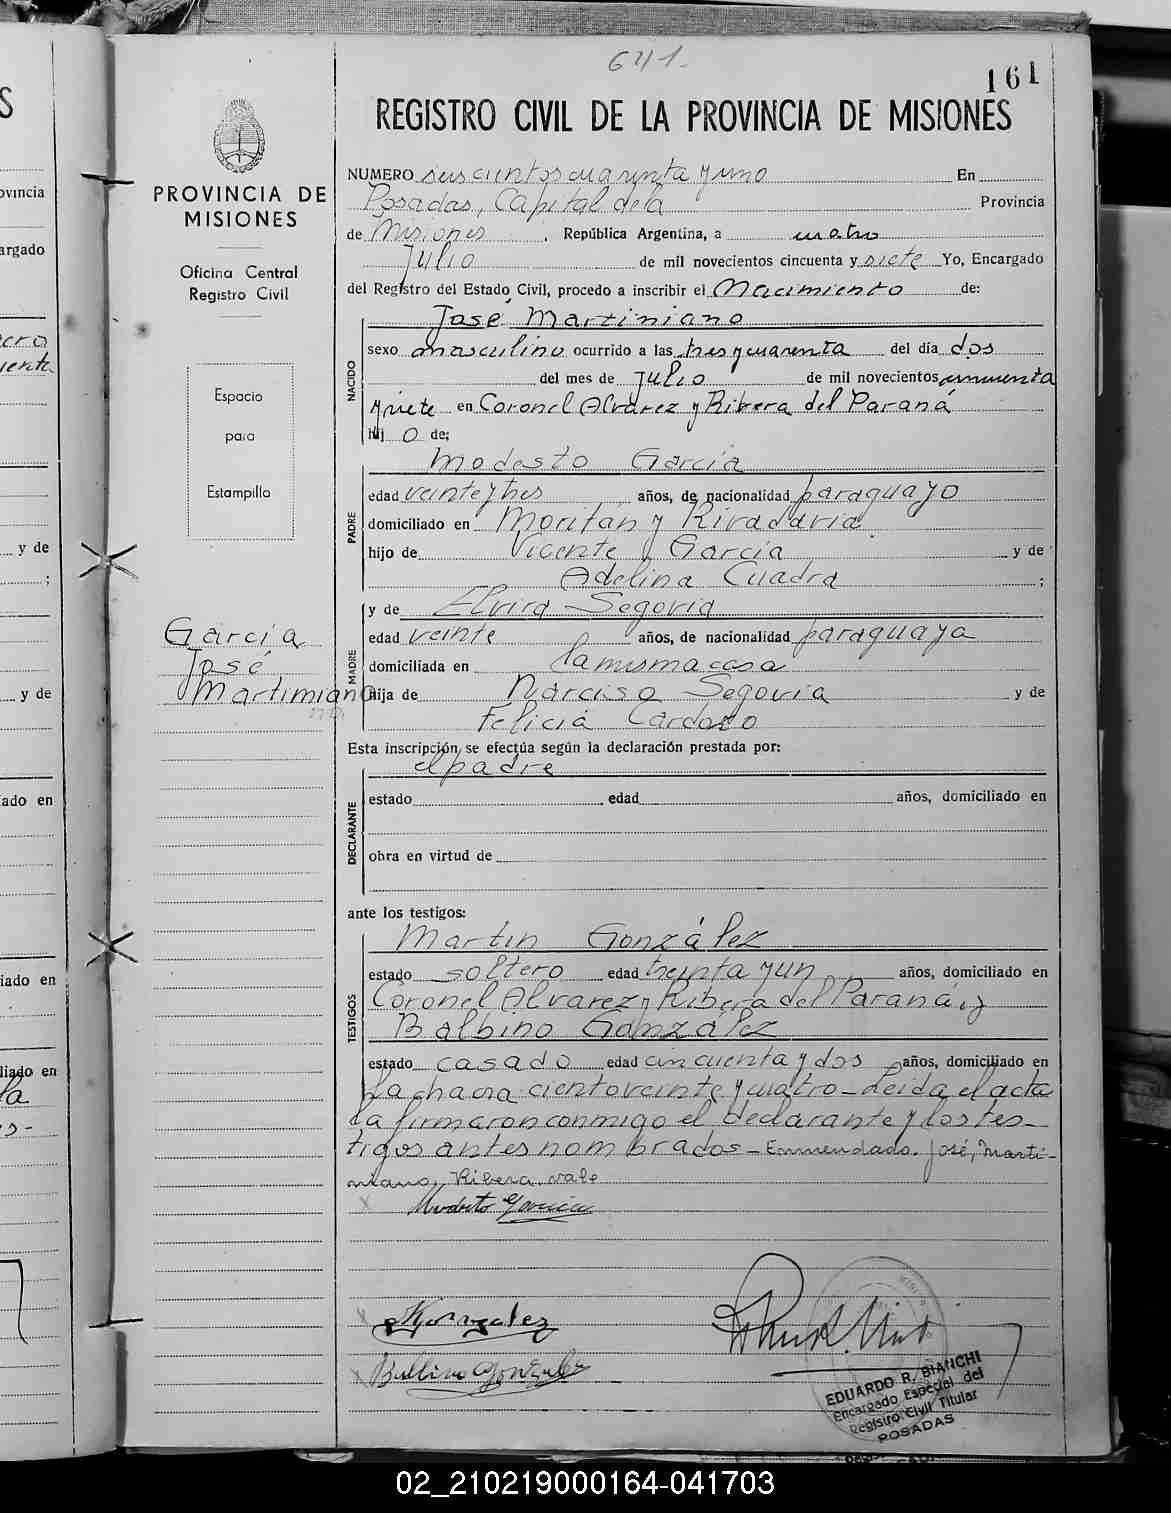 641.
161
REGISTRO CIVIL DE LA PROVINCIA DE MISIONES
PROVINCIA DE
MISIONES
Oficina Central
Registro Civil
Espacio
para
Estampilla
García
José
Martiniano
NUMERO seiscientos cuarenta y uno En
Posadas, Capital de la Provincia
de Misiones, República Argentina, a cuatro
Julio de mil novecientos cincuenta y siete Yo, Encargado
del Registro del Estado Civil, procedo a inscribir el Nacimiento de:
NACIDO
José Martiniano
sexo masculino ocurrido a las tres y cuarenta del día dos
del mes de Julio de mil novecientos cincuenta
y siete en Coronel Alvarez y Ribera del Paraná
hij o de;
PADRE
Modesto García
edad veinte y tres años, de nacionalidad paraguayo
domiciliado en Moritán y Rivadavia
hijo de Vicente García y de
Adelina Cuadra ;
MADRE
y de Elvira Segovia
edad veinte años, de nacionalidad paraguaya
domiciliada en la misma casa
hija de Narciso Segovia y de
Felicia Cardozo
Esta inscripción se efectúa según la declaración prestada por:
DECLARANTE
el padre
estado edad años, domiciliado en
obra en virtud de
ante los testigos:
TESTIGOS
Martín González
estado soltero edad treinta y un años, domiciliado en
Coronel Alvarez y Ribera del Paraná, y
Balbino González
estado casado edad cincuenta y dos años, domiciliado en
La chacra ciento veinte y cuatro - Leida el acta
la firmaron conmigo el declarante y los tes-
tigos antes nombrados - Enmendado. José, Marti-
niano, Ribera. vale
Modesto García
González
Balbino González
EDUARDO R. BIANCHI
Encargado Especial del
Registro Civil Titular
POSADAS
S
ovincia
argado
y de
;
y de
ado en
iado en
liado en
la
02_210219000164-041703